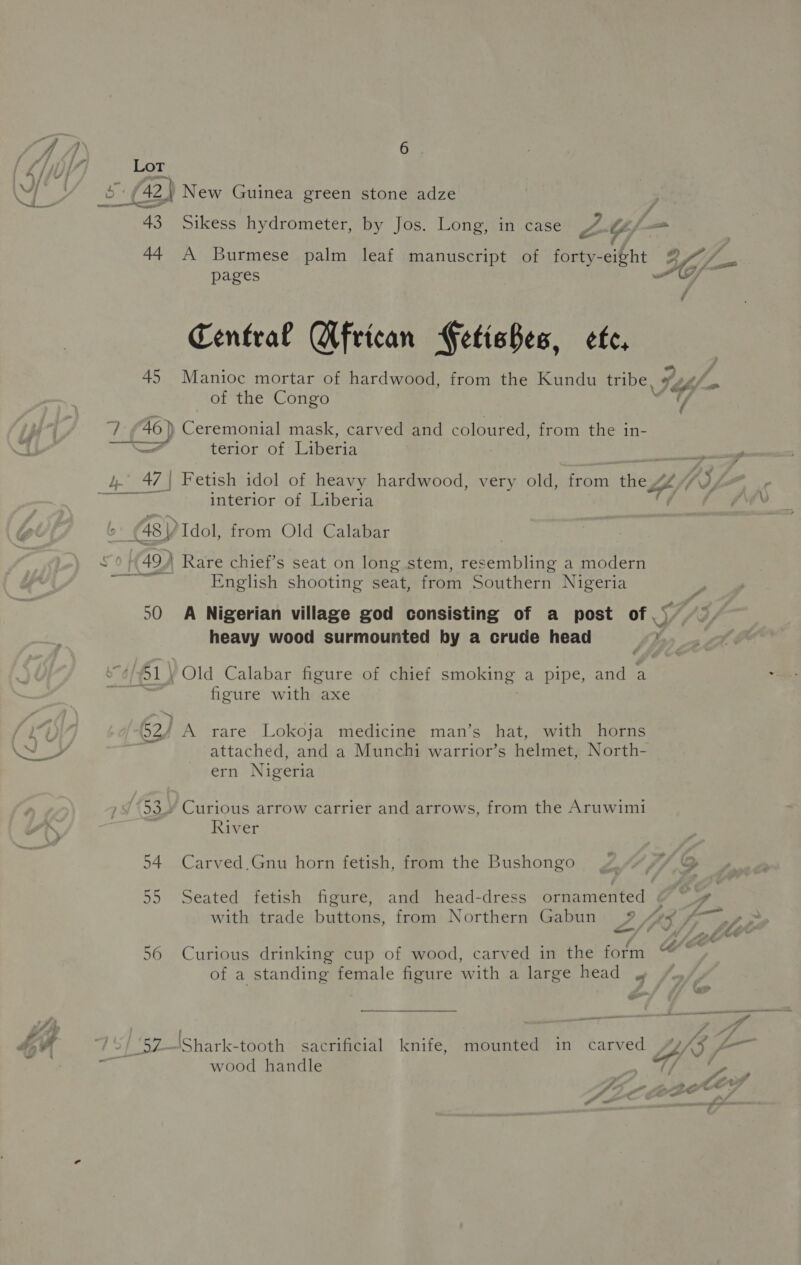 6
Lot
42 New Guinea green stone adze
43 Sikess hydrometer, by Jos. Long, in case
44 A Burmese palm leaf manuscript of forty-eight
pages
Central African Fetishes, etc.
45 Manioc mortar of hardwood, from the Kundu tribe
of the Congo
46 Ceremonial mask, carved and coloured, from the in-
terior of Liberia
47 Fetish idol of heavy hardwood, very old, from the
interior of Liberia
48 Idol, from Old Calabar
49 Rare chief's seat on long stem, resembling a modern
English shooting seat, from Southern Nigeria
50 A Nigerian village god consisting of a post of
heavy wood surmounted by a crude head
51 Old Calabar figure of chief smoking a pipe, and a
figure with axe
52 A rare Lokoja medicine man's hat, with horns
attached, and a Munchi warrior's helmet, North-
ern Nigeria
53 Curious arrow carrier and arrows, from the Aruwimi
River
54 Carved Gnu horn fetish, from the Bushongo
55 Seated fetish figure, and head-dress ornamented
with trade buttons, from Northern Gabun
56 Curious drinking cup of wood, carved in the form
of a standing female figure with a large head
57 Shark-tooth sacrificial knife, mounted in carved
wood handle